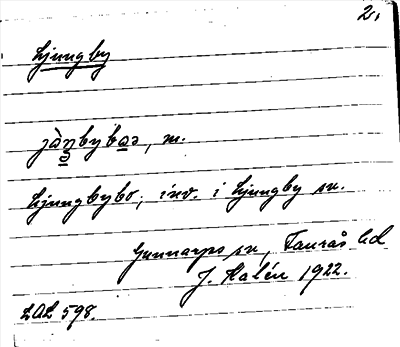 2.
Ljungby
jàŋbybᴀə, m.
Ljungbybo; inv. i Ljungby sn.
Gunnarps sn, Faurås hd
J. Kalén 1922.
LAL 598.